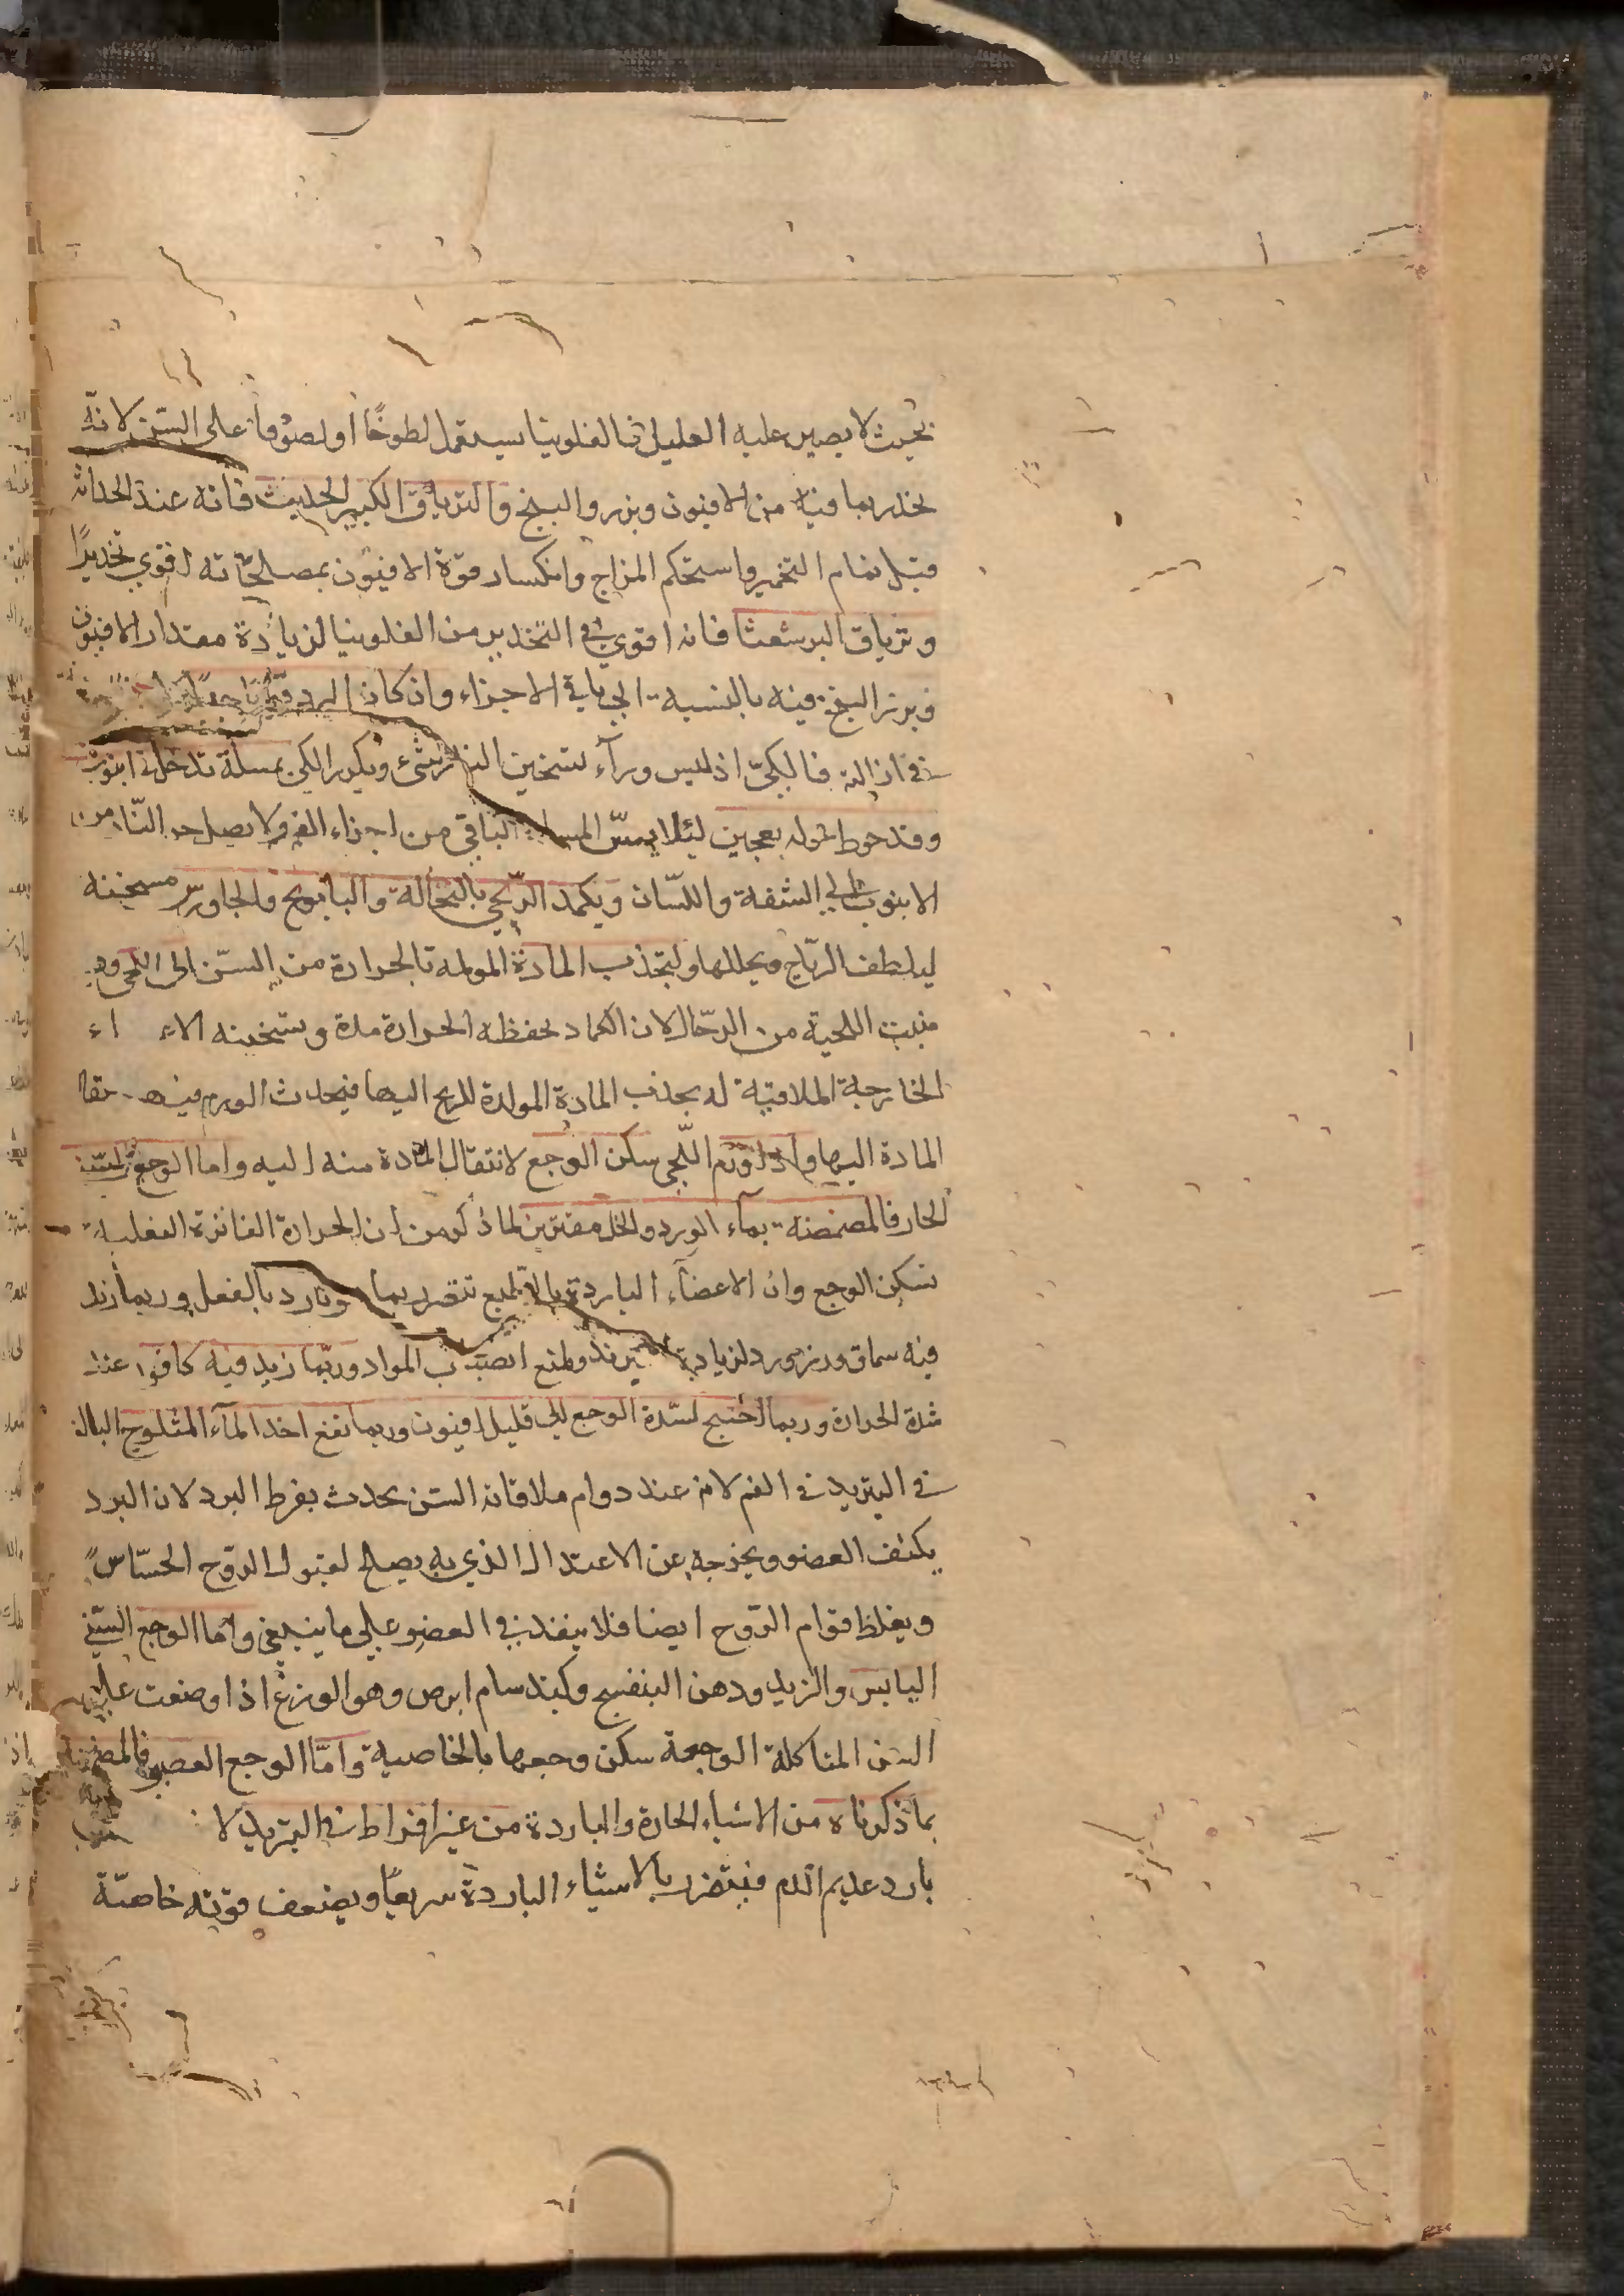 بحيث لا يصبر عليه العليل فالفلونيا يستعمل لطوخًا او لصوقا على السن لانه
يخدر بما فيه من الافيون وبزر والبنج والترياق الكبير الحديث فانه عند الحداثه
قبل تمام التخمير واستحكم المزاج وانكسار قوة الافيون بمصلحاته اقوي تخديرًا
وترياق البرشعثا فانه اقوي في التخدير من الفلونيا لزيادة مقدار الافيون
وبزر البنج فيه بالنسبه الي باقي الاجزاء وان كان البرد قويا
في ازالته فالكيّ اذ ليس ورآء تسخين النار شئ ويكرر الكي بمسلة تدخل في انبوب
وقد حوط حوله بعجين لئلا يمسّ المسلة الباقي من اجزاء الفم ولا يصل حر النّار من
الانبوب الي الشفة واللسّان ويكمد اللّحي بالنخالة والبابونج والجاورس مسخنه
ليلطف الرّياح ويحللها ولتجذب المادة المولمه بالحرارة من السّن الى اللحى وهو
منبت اللحية من الرجّال لان الكماد يحفظه الحرارة مدة وتسخينه
الخارجة الملاقية له يجذب المادة المولدة للريح اليها فيحدث الورم
المادة اليها واذا ورم اللّحى سكن الوجع لانتقال المادة منه اليه واما الوجع السنّ
الحار فالمضمضه بمآء الورد والخل مفترين لما ذكر من ان الحرارة الفاترة الفعليه
تسكن الوجع وان الاعضآء الباردة بالطبع تتضرر بما هو بارد بالفعل وربما زيد
فيه سماق وبزر ورد لزيادة تبريد ولمنع انصباب المواد وربّما زيد فيه كافور عند
شدة الحرارة وربما احتيج لشدة الوجع الي قليل افيون وربما نفع اخذ المآء المثلوج البالغ
في التبريد في الفم لانه عند دوام ملاقاته السن يحدث بفرط البرد لان البرد
يكثف العضو ويخرجه عن الاعتدال الذي به يصلح لقبول الروّح الحسّاس
ويغلظ قوام الروّح ايضا فلا ينفذ في العضو على ما ينبغي واما الوجع السّني
اليابس والزبد ودهن البنفسج وكبد سام ابرص وهو الوزغ اذا وضعت علي
السن المتاكلة الوجعة سكن وجعها بالخاصية وامّا الوجع العصبي فالمضمضه
بما ذكرناه من الاشياء الحارة والباردة من غير افراط في التبريد لا
بارد عديم الدم فيتضرر بالاشياء الباردة سريعًا ويضعف قوته خاصّة